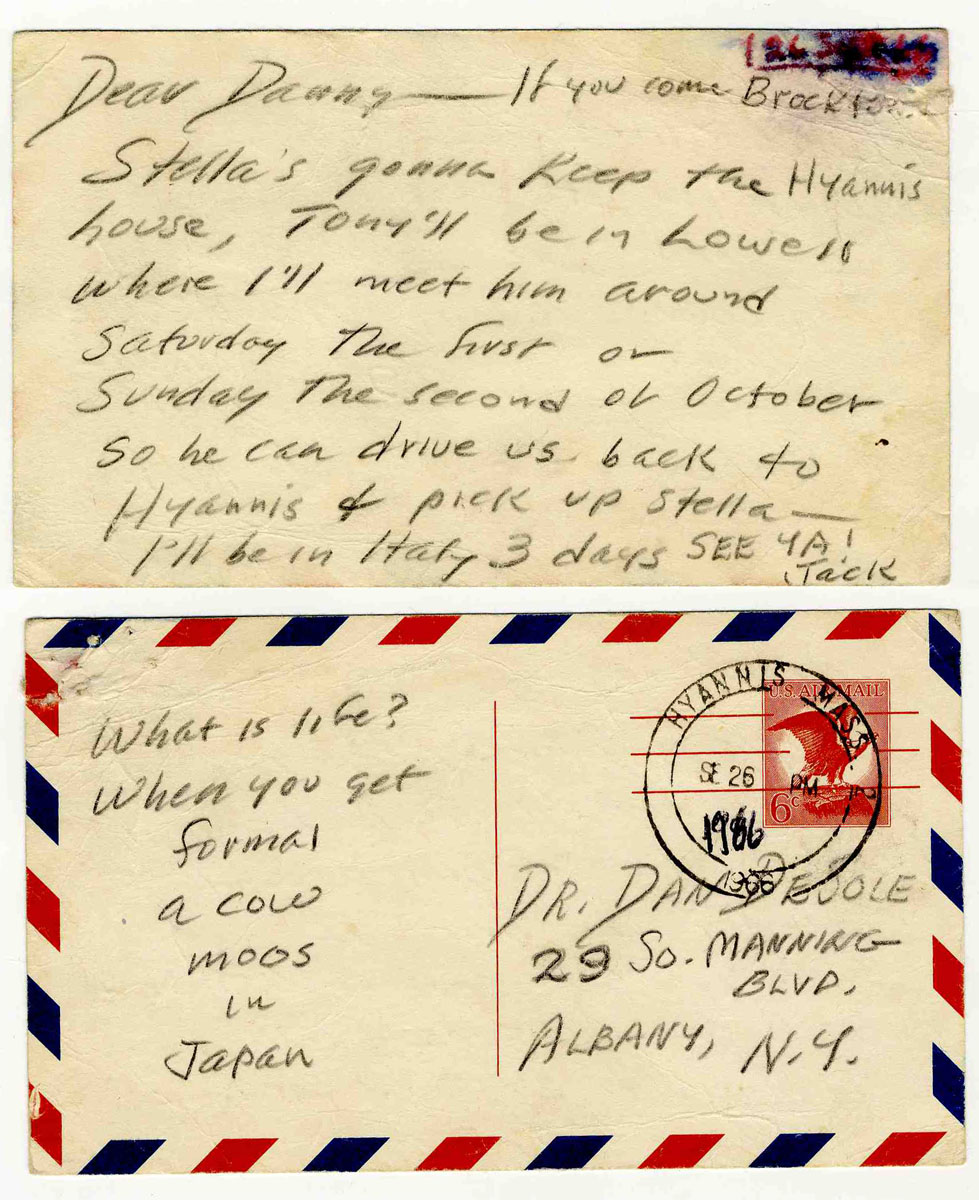 Dear Danny — If you come Brockton
Stella's gonna keep the Hyannis
house, Tony'll be in Lowell
where I'll meet him around
Saturday the first or
Sunday the second of October
so he can drive us back to
Hyannis & pick up Stella —
I'll be in Italy 3 days SEE YA!
Jack
What is life?
When you get
formal
a cow
moos
in
Japan
HYANNIS MASS.
SE 26 PM
1966
1966
U.S. AIR MAIL
6c
DR. DAN DESOLE
29 So. MANNING
BLVD.
ALBANY, N.Y.